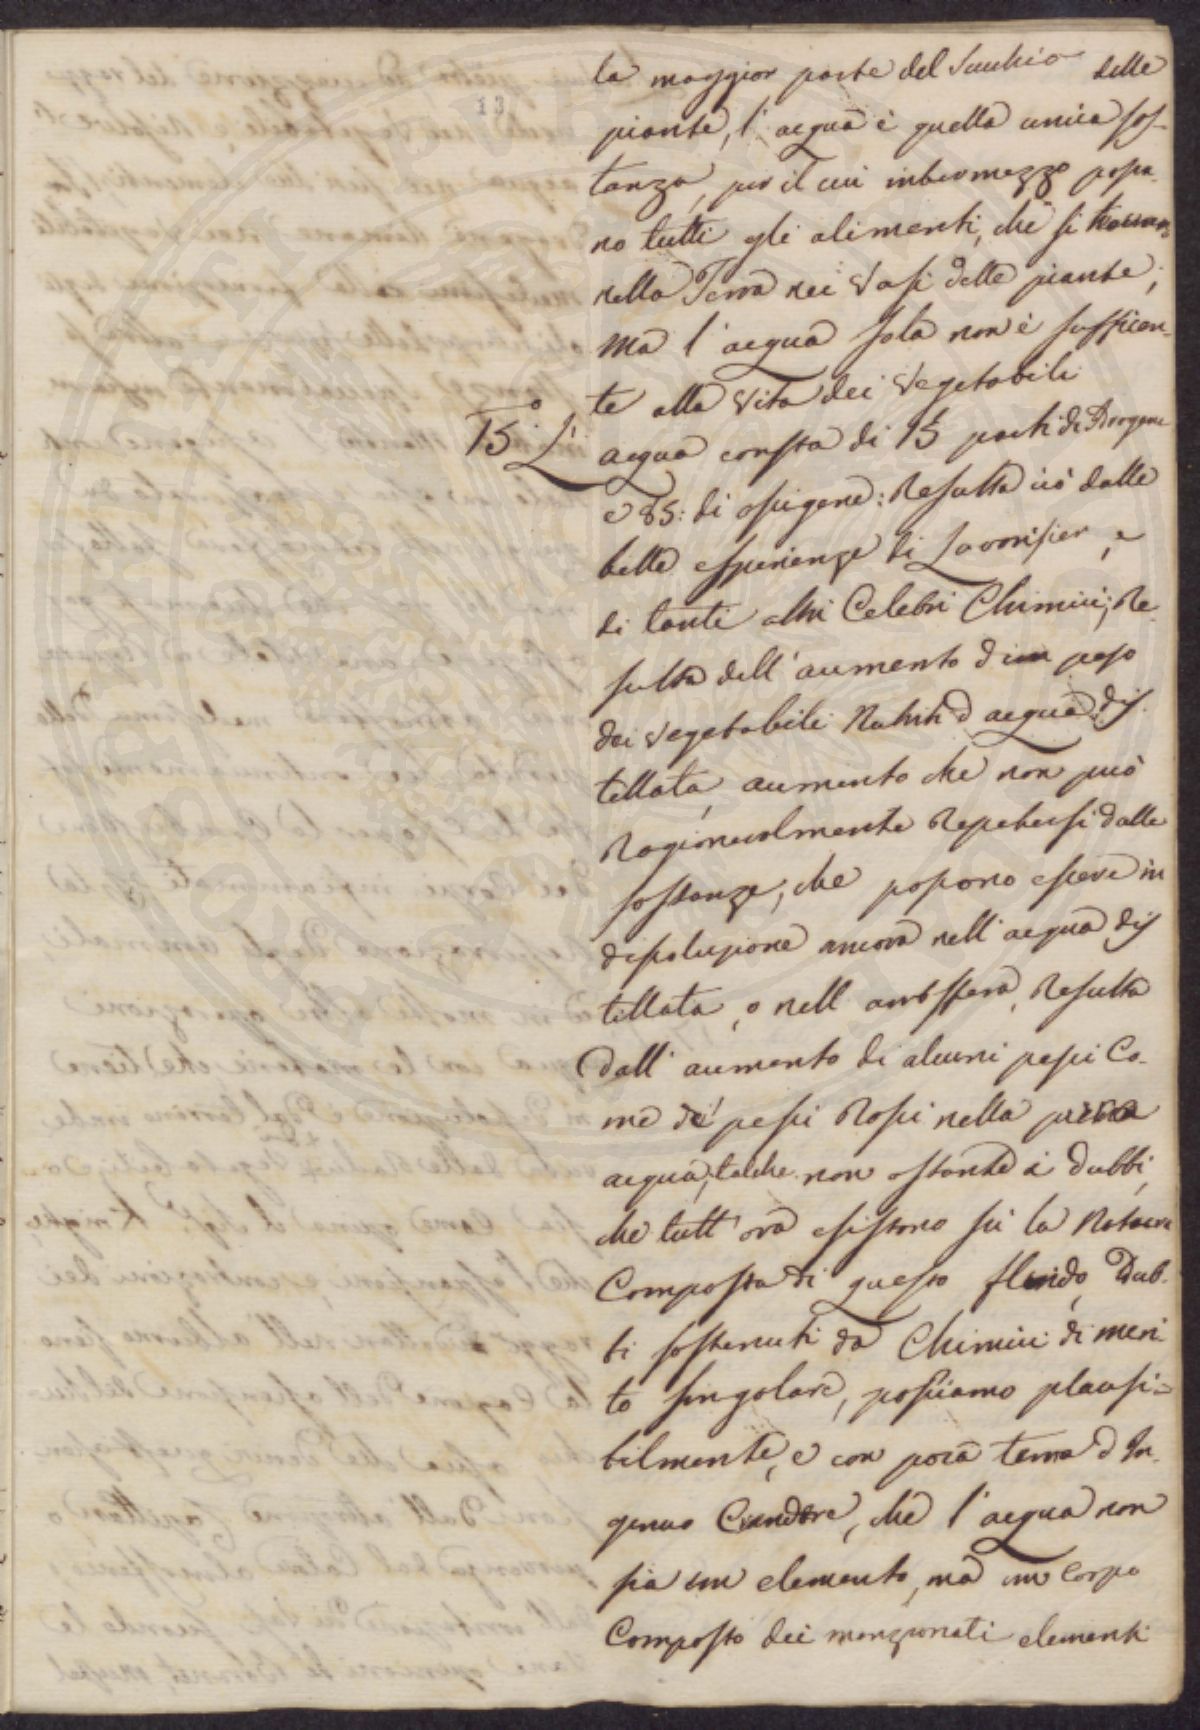 13
la maggior parte del Succhio delle
piante, l'acqua è quella unica sos-
tanza, per il cui intermezzo passa-
no tutti gli alimenti, che si trovano
nella Terra nei Vasi delle piante;
Ma l'acqua sola non è sufficien-
te alla vita dei Vegetabili
15.° L'acqua consta di 15 parti di Idrogene
e 85: di ossigene: Resulta ciò dalle
belle esperienze di Lavoisier, e
di tanti altri Celebri Chimici; Re-
sulta dell'aumento di un peso
dei vegetabili Nutriti d'acqua dis-
tillata, aumento che non può
Ragionevolmente Repetersi dalle
sostanze, che possono essere in
dissoluzione ancora nell'acqua dis
tillata, o nell'amosfera, Resulta
Dall'aumento di alcuni pesci Co-
me de' pesci Rossi nella pura
acqua, talchè non ostante i dubbi,
che tutt'ora esistono su la Natura
Composta di questo fluido, Dub-
bi sostenuti da Chimici di meri
to singolare, possiamo plausi=
bilmente, e con poca tema d'In-
genuo Candore, che l'acqua non
sia un elemento, ma un Corpo
Composto dei menzionati elementi